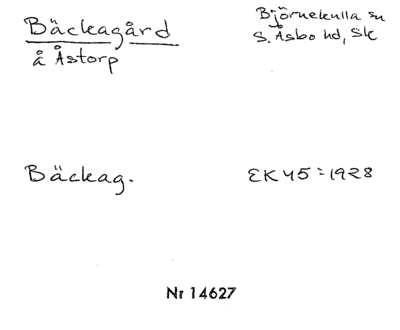 Bäckagård
å Åstorp
Björnekulla sn
S. Åsbo hd, Sk
Bäckag.
EK 45 : 1928
Nr 14627